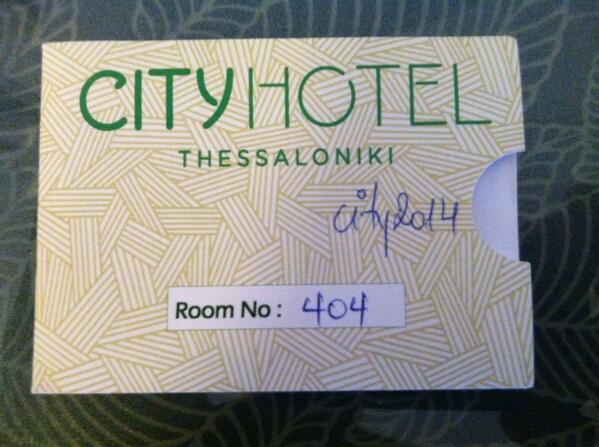 CITYHOTEL
THESSALONIKI
city2014
Room No : 404